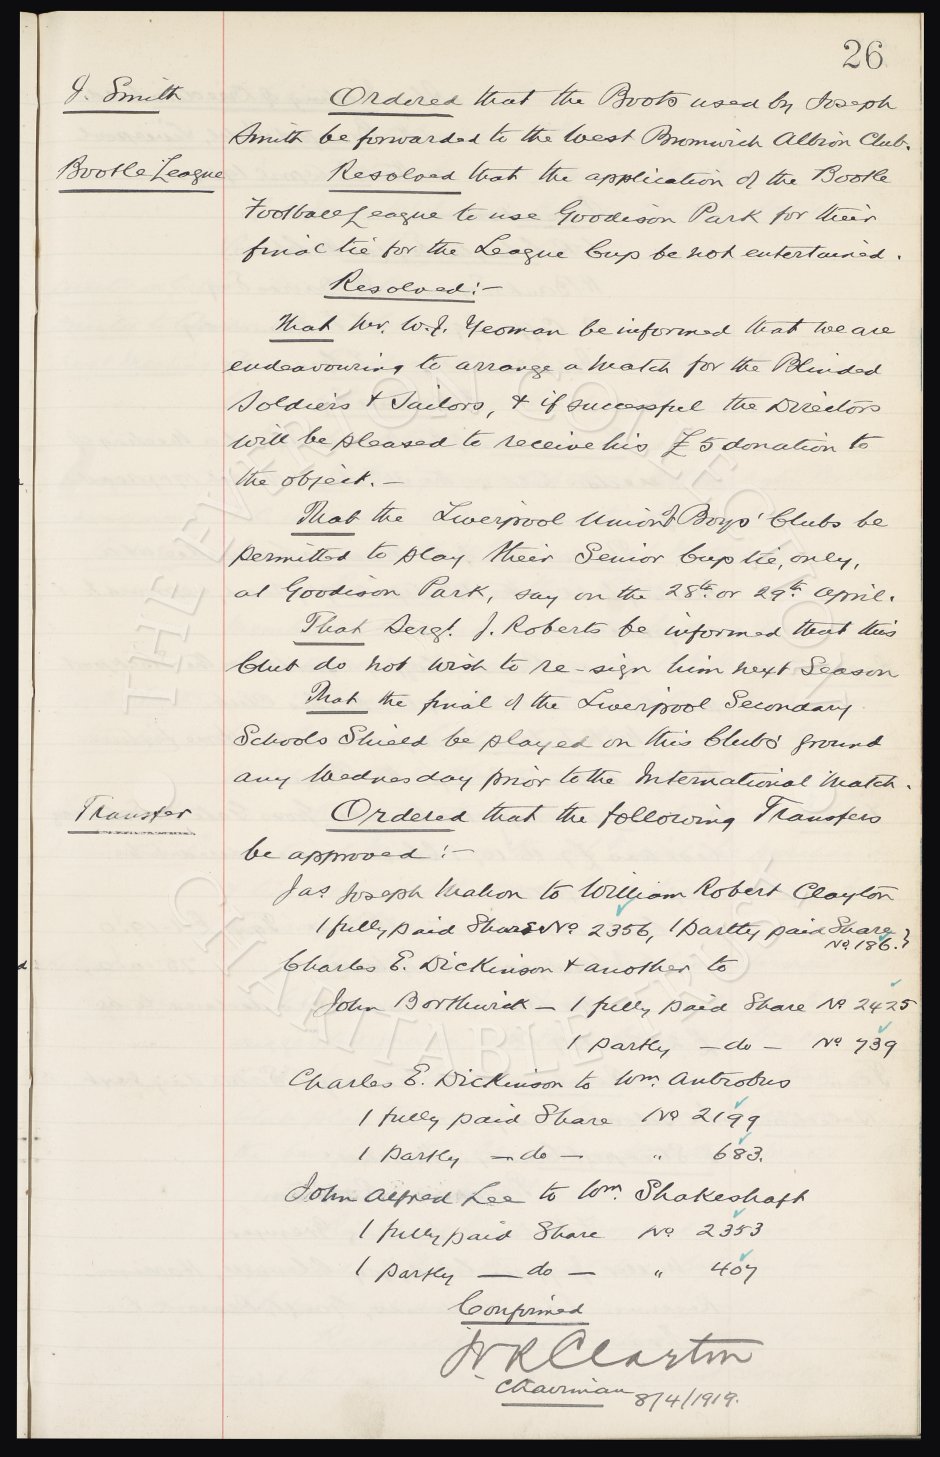 26
J. Smith
Ordered that the Boots used by Joseph
Smith be forwarded to the West Bromwich Albion Club.
Bootle League
Resolved that the application of the Bootle
Football League to use Goodison Park for their
final tie for the League Cup be not entertained.
Resolved:-
That Mr. W.J. Yeoman be informed that we are
endeavouring to arrange a match for the Blinded
Soldiers & Sailors, & if successful the Directors
will be pleased to receive his £5 donation to
the object. -
That the Liverpool Union of Boys' Clubs be
permitted to play their Senior Cup tie, only,
at Goodison Park, say on the 28th or 29th April.
That Sergt. J. Roberts be informed that this
Club do not wish to re-sign him next Season
That the final of the Liverpool Secondary
Schools Shield be played on this Club's ground
any Wednesday prior to the International Match.
Transfer
Ordered that the following Transfers
be approved :-
Jas Joseph Mahon to William Robert Clayton
1 fully paid Share No 2356, 1 partly paid Share
No 186. }
Charles E. Dickinson & another to
John Borthwick - 1 fully paid Share No 2425
1 partly - do - No 739
Charles E. Dickinson to Wm. Antrobus
1 fully paid Share No 2199
1 partly - do - " 683.
John Alfred Lee to Wm. Shakeshaft
1 fully paid Share No 2353
1 partly - do - " 407
Confirmed
W R Clayton
Chairman 8/4/1919.
THE EVERTON COLLECTION
CHARITABLE TRUST